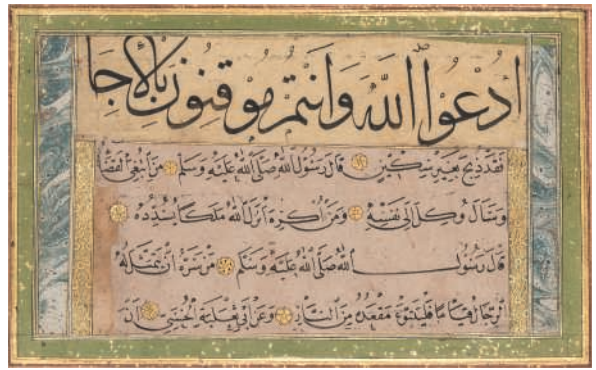 اُدْعُوا اللهَ وَاَنْتُمْ مُوقِنُونَ بِالْاِجَا
فَقَدْ ذُبِحَ بِغَيْرِ سِكِّينٍ قَالَ رَسُولُ اللهِ صَلَّى اللهُ عَلَيْهِ وَسَلَّمَ مَنِ ابْتَغَى الْقَضَا
وَسَاَلَ وُكِلَ اِلَى نَفْسِهِ وَمَنْ اُكْرِهَ اَنْزَلَ اللهُ مَلَكًا يُسَدِّدُهُ
قَالَ رَسُولُ اللهِ صَلَّى اللهُ عَلَيْهِ وَسَلَّمَ مَنْ سَرَّهُ اَنْ يَتَمَثَّلَ لَهُ
الرِّجَالُ قِيَامًا فَلْيَتَبَوَّءْ مَقْعَدَهُ مِنَ النَّارِ وَعَنْ اَبِي ثَعْلَبَةَ الْخُشَنِيِّ اَنَّ